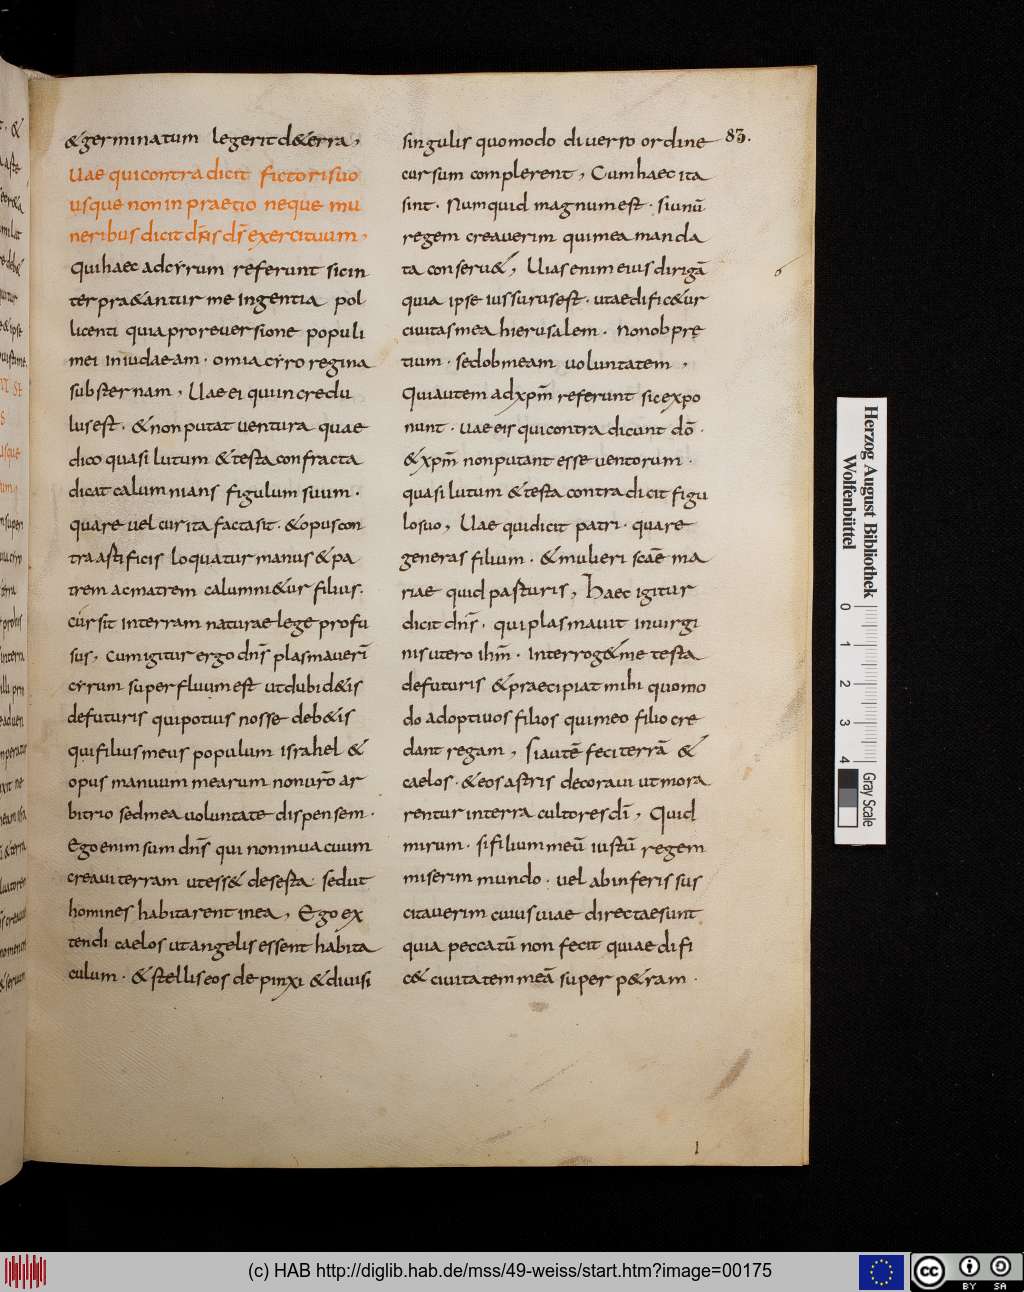 &germinatum legerit d&erra,
Uae qui contradicit fictori suo
usque non in praetio neque mu
neribus dicit dn̄s ds̄ exercituum,
Qui haec ad cyrum referunt sic in
terpra&antur me ingentia pol
licenti quia pro reuersione populi
mei in iudaeam · omīa cyro regna
substernam, Uae ei qui incredu
lus est · & non putat uentura quae
dico quasi lutum & testa confracta
dicat calumnians figulum suum ·
quare uel cur ita facta sit · & opus con
tra astificis loquatur manus & pa
trem ac matrem calumni&ur filius ·
cur sit in terram naturae lege profu
sus, cum igitur ergo dn̄s plasmauerī
cyrum superfluum est ut dubid&is
de futuris qui potius nosse deb&is
qui filius meus populum israhel &
opus manuum mearum non ur̄o ar
bitrio sed mea uoluntate dispensem ·
Ego enim sum dn̄s qui non in uacuum
creaui terram ut ess& deserta sed ut
homines habitarent in ea, Ego ex
tendi caelos ut angelis essent habita
culum · & stellis eos depinxi & diuisi
singulis quomodo diuerso ordine
cursum complerent, Cum haec ita
sint · Numquid magnum est · si unū
regem creauerim qui mea manda
ta conseru&, Uias enim eius dirigā
quia ipse iussurus est · ut aedific&ur
ciuitas mea hierusalem · non ob prę
tium · sed ob meam uoluntatem,
Qui autem ad xpm̄ referunt sic expo
nunt · uae eis qui contra dicunt dō ·
& xpm̄ non putant esse uentorum ·
quasi lutum & testa contradicit figu
lo suo, Uae qui dicit patri · quare
generas filium · & mulieri scāe ma
riae quid pasturis, Haec igitur
dicit dn̄s · qui plasmauit in uirgi
nis utero ihm̄ · Interrog& me testa
de futuris & praecipiat mihi quomo
do adoptiuos filios qui meo filio cre
dant regam, si autē feci terrā &
caelos · & eos astris decoraui ut mora
rentur in terra cultores dī, Quid
mirum · si filium meū iustū regem
miserim mundo · uel ab inferis sus
citauerim cuius uiae directae sunt
quia peccatū non fecit qui aedifi
c& ciuitatem meā super p&ram ·
83.
Herzog August Bibliothek
Wolfenbüttel
0 1 2 3 4
Gray Scale
(c) HAB http://diglib.hab.de/mss/49-weiss/start.htm?image=00175
cc BY SA